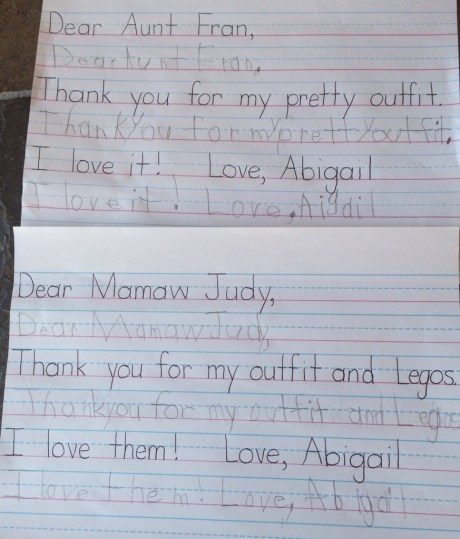 Dear Aunt Fran,
Dear Aunt Fran,
Thank you for my pretty outfit.
Thank you for my pretty outfit.
I love it! Love, Abigail
I love it! Love, Aigail
Dear Mamaw Judy,
Dear Mamaw Judy,
Thank you for my outfit and Legos.
Thankyou for my outfit and Legos
I love them! Love, Abigail
I love them! Love, Abigail